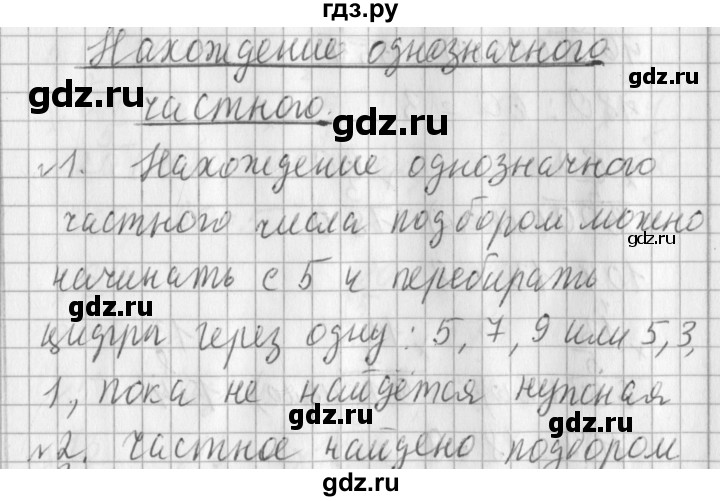 гдз.ру
Нахождение однозначного
частного.
№1. Нахождение однозначного
частного числа подбором можно
начинать с 5 и перебирать
цифры через одну: 5, 7, 9 или 5, 3,
1, пока не найдётся нужная
№2. частное найдено подбором
gdz.ru
gdz.ru
gdz.ru
gdz.ru
gdz.ru
gdz.ru
gdz.ru
gdz.ru
gdz.ru
gdz.ru